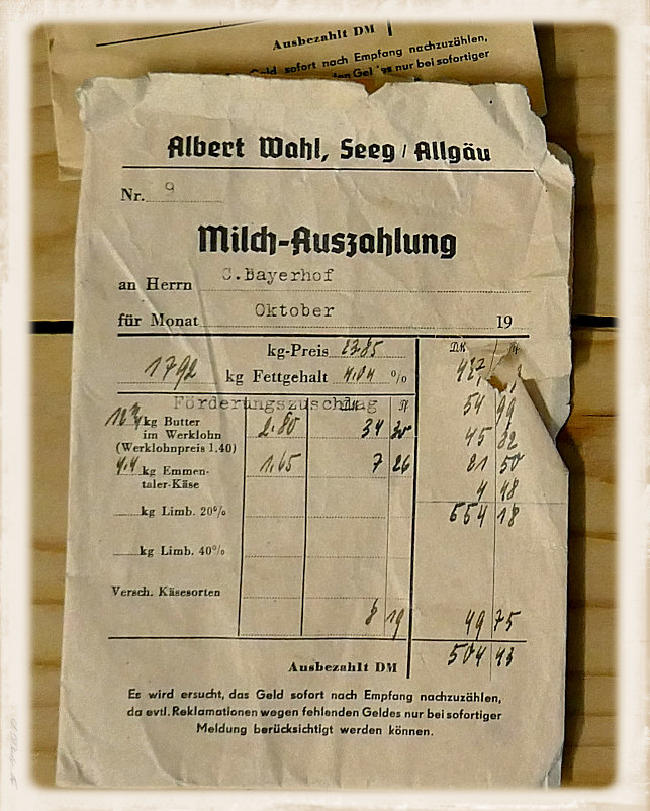 Ausbezahlt DM
Geld sofort nach Empfang nachzuzählen,
nur bei sofortiger
Albert Wahl, Seeg / Allgäu
Nr. 9
Milch-Auszahlung
an Herrn C.Bayerhof
für Monat Oktober 19
kg-Preis 23.85
1792 kg Fettgehalt 4.04 %
Förderungszuschlag 54 99
kg Butter 2.80 34 30 45 32
im Werklohn
(Werklohnpreis 1.40)
4.4 kg Emmen- 1.65 7 26 21 50
taler-Käse 4 48
kg Limb. 20% 554 18
kg Limb. 40%
Versch. Käsesorten
8 19 49 75
Ausbezahlt DM 504 43
Es wird ersucht, das Geld sofort nach Empfang nachzuzählen,
da evtl. Reklamationen wegen fehlenden Geldes nur bei sofortiger
Meldung berücksichtigt werden können.